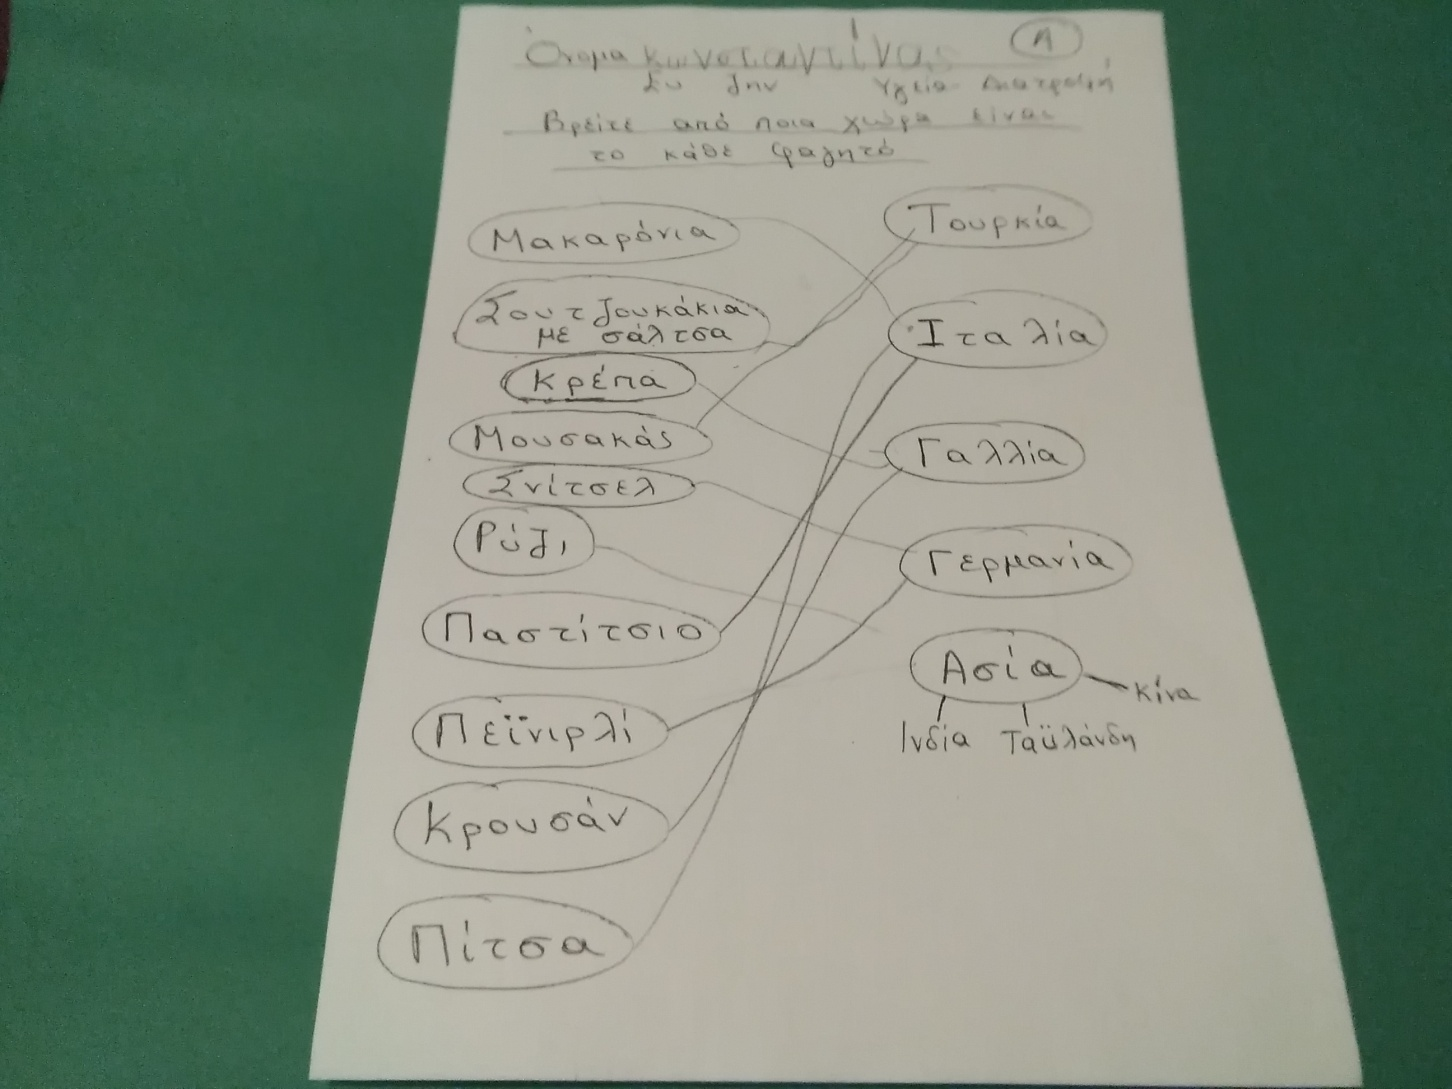 Όνομα Κωνσταντίνας Α
Υγεία Διατροφή
Βρείτε από ποια χώρα είναι
το κάθε φαγητό
Μακαρόνια
Σουτζουκάκια
με σάλτσα
Κρέπα
Μουσακάς
Σνίτσελ
Ρύζι
Παστίτσιο
Πεϊνιρλί
Κρουσάν
Πίτσα
Τουρκία
Ιταλία
Γαλλία
Γερμανία
Ασία
Κίνα
Ινδία Ταϋλάνδη